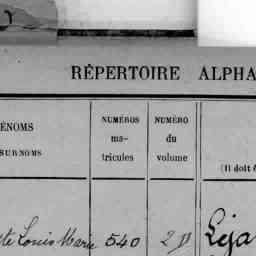 RÉPERTOIRE ALPHA
ÉNOMS
SURNOMS
NUMÉROS
ma-
tricules
NUMÉRO
du
volume
(Il doit ê
te Louis Marie 540 2 Leja